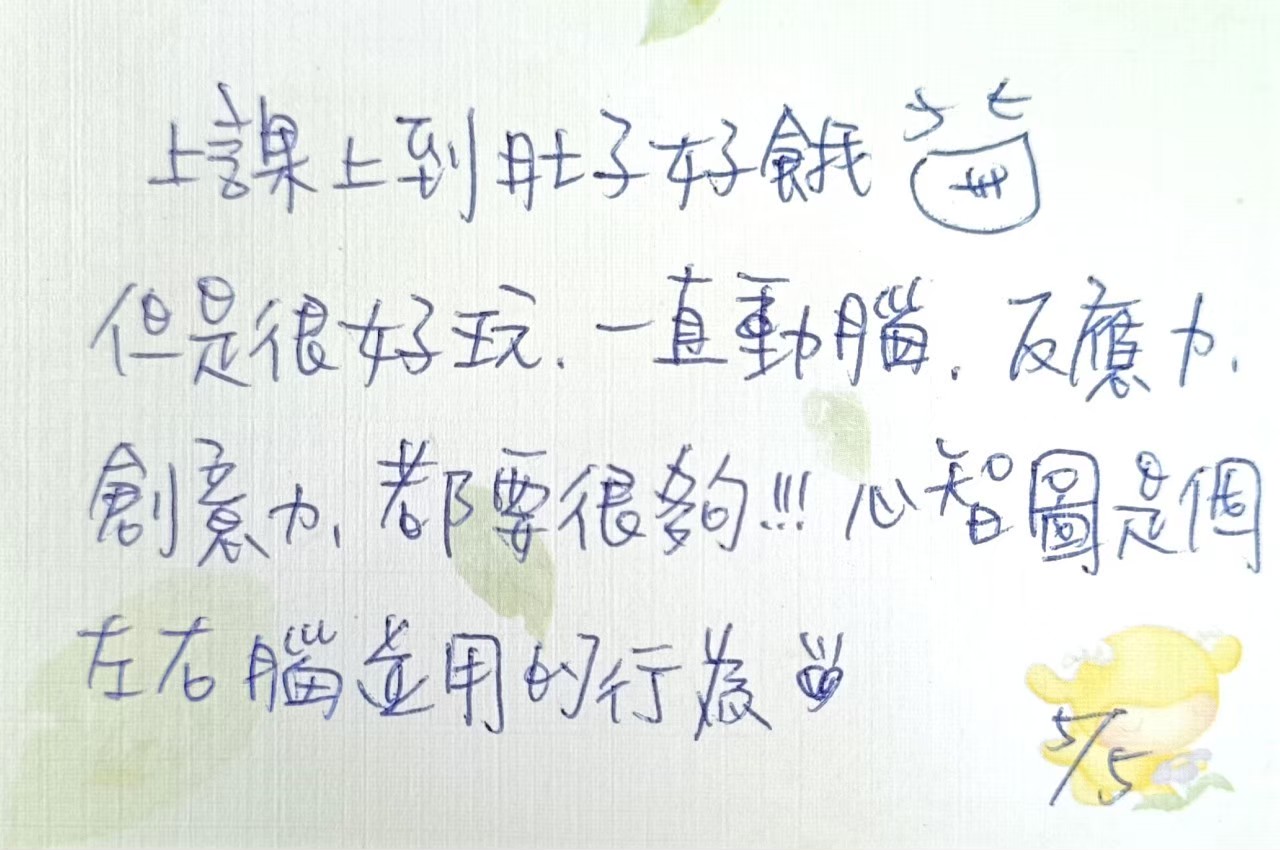 上課上到肚子好餓
但是很好玩.一直動腦.反應力.
創意力,都要很夠!!!心智圖是個
左右腦並用的行為
5/5